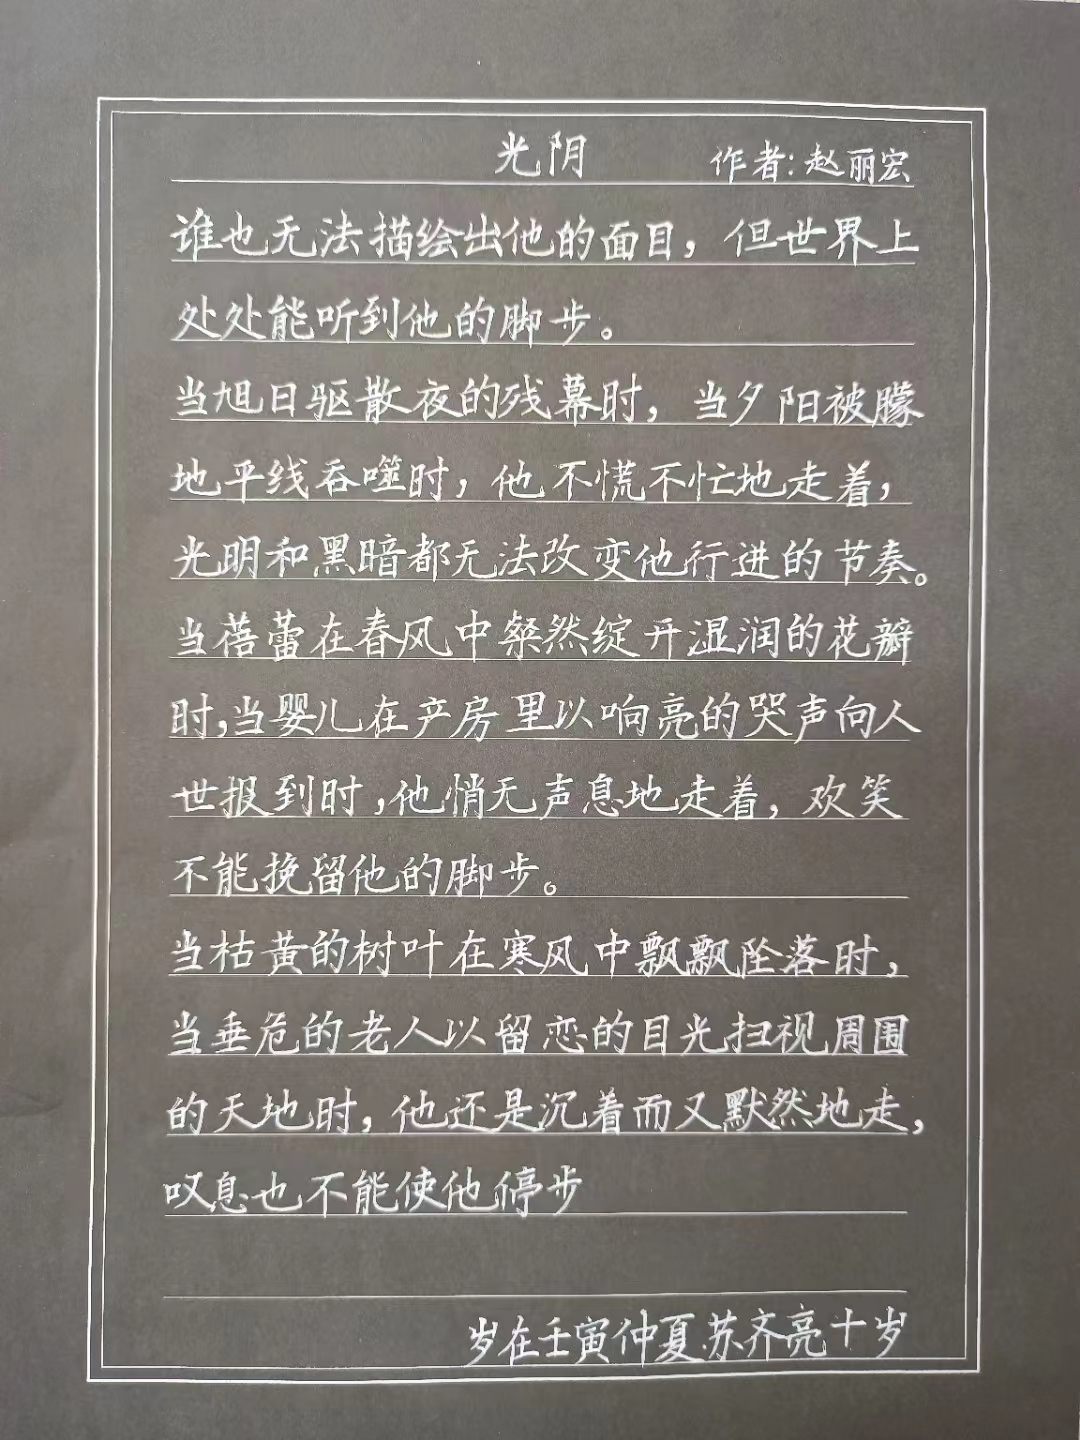 光阴 作者:赵丽宏
谁也无法描绘出他的面目，但世界上
处处能听到他的脚步。
当旭日驱散夜的残幕时，当夕阳被朦
地平线吞噬时，他不慌不忙地走着，
光明和黑暗都无法改变他行进的节奏。
当蓓蕾在春风中粲然绽开湿润的花瓣
时,当婴儿在产房里以响亮的哭声向人
世报到时,他悄无声息地走着，欢笑
不能挽留他的脚步。
当枯黄的树叶在寒风中飘飘坠落时，
当垂危的老人以留恋的目光扫视周围
的天地时，他还是沉着而又默然地走，
叹息也不能使他停步
岁在壬寅仲夏.苏齐亮十岁